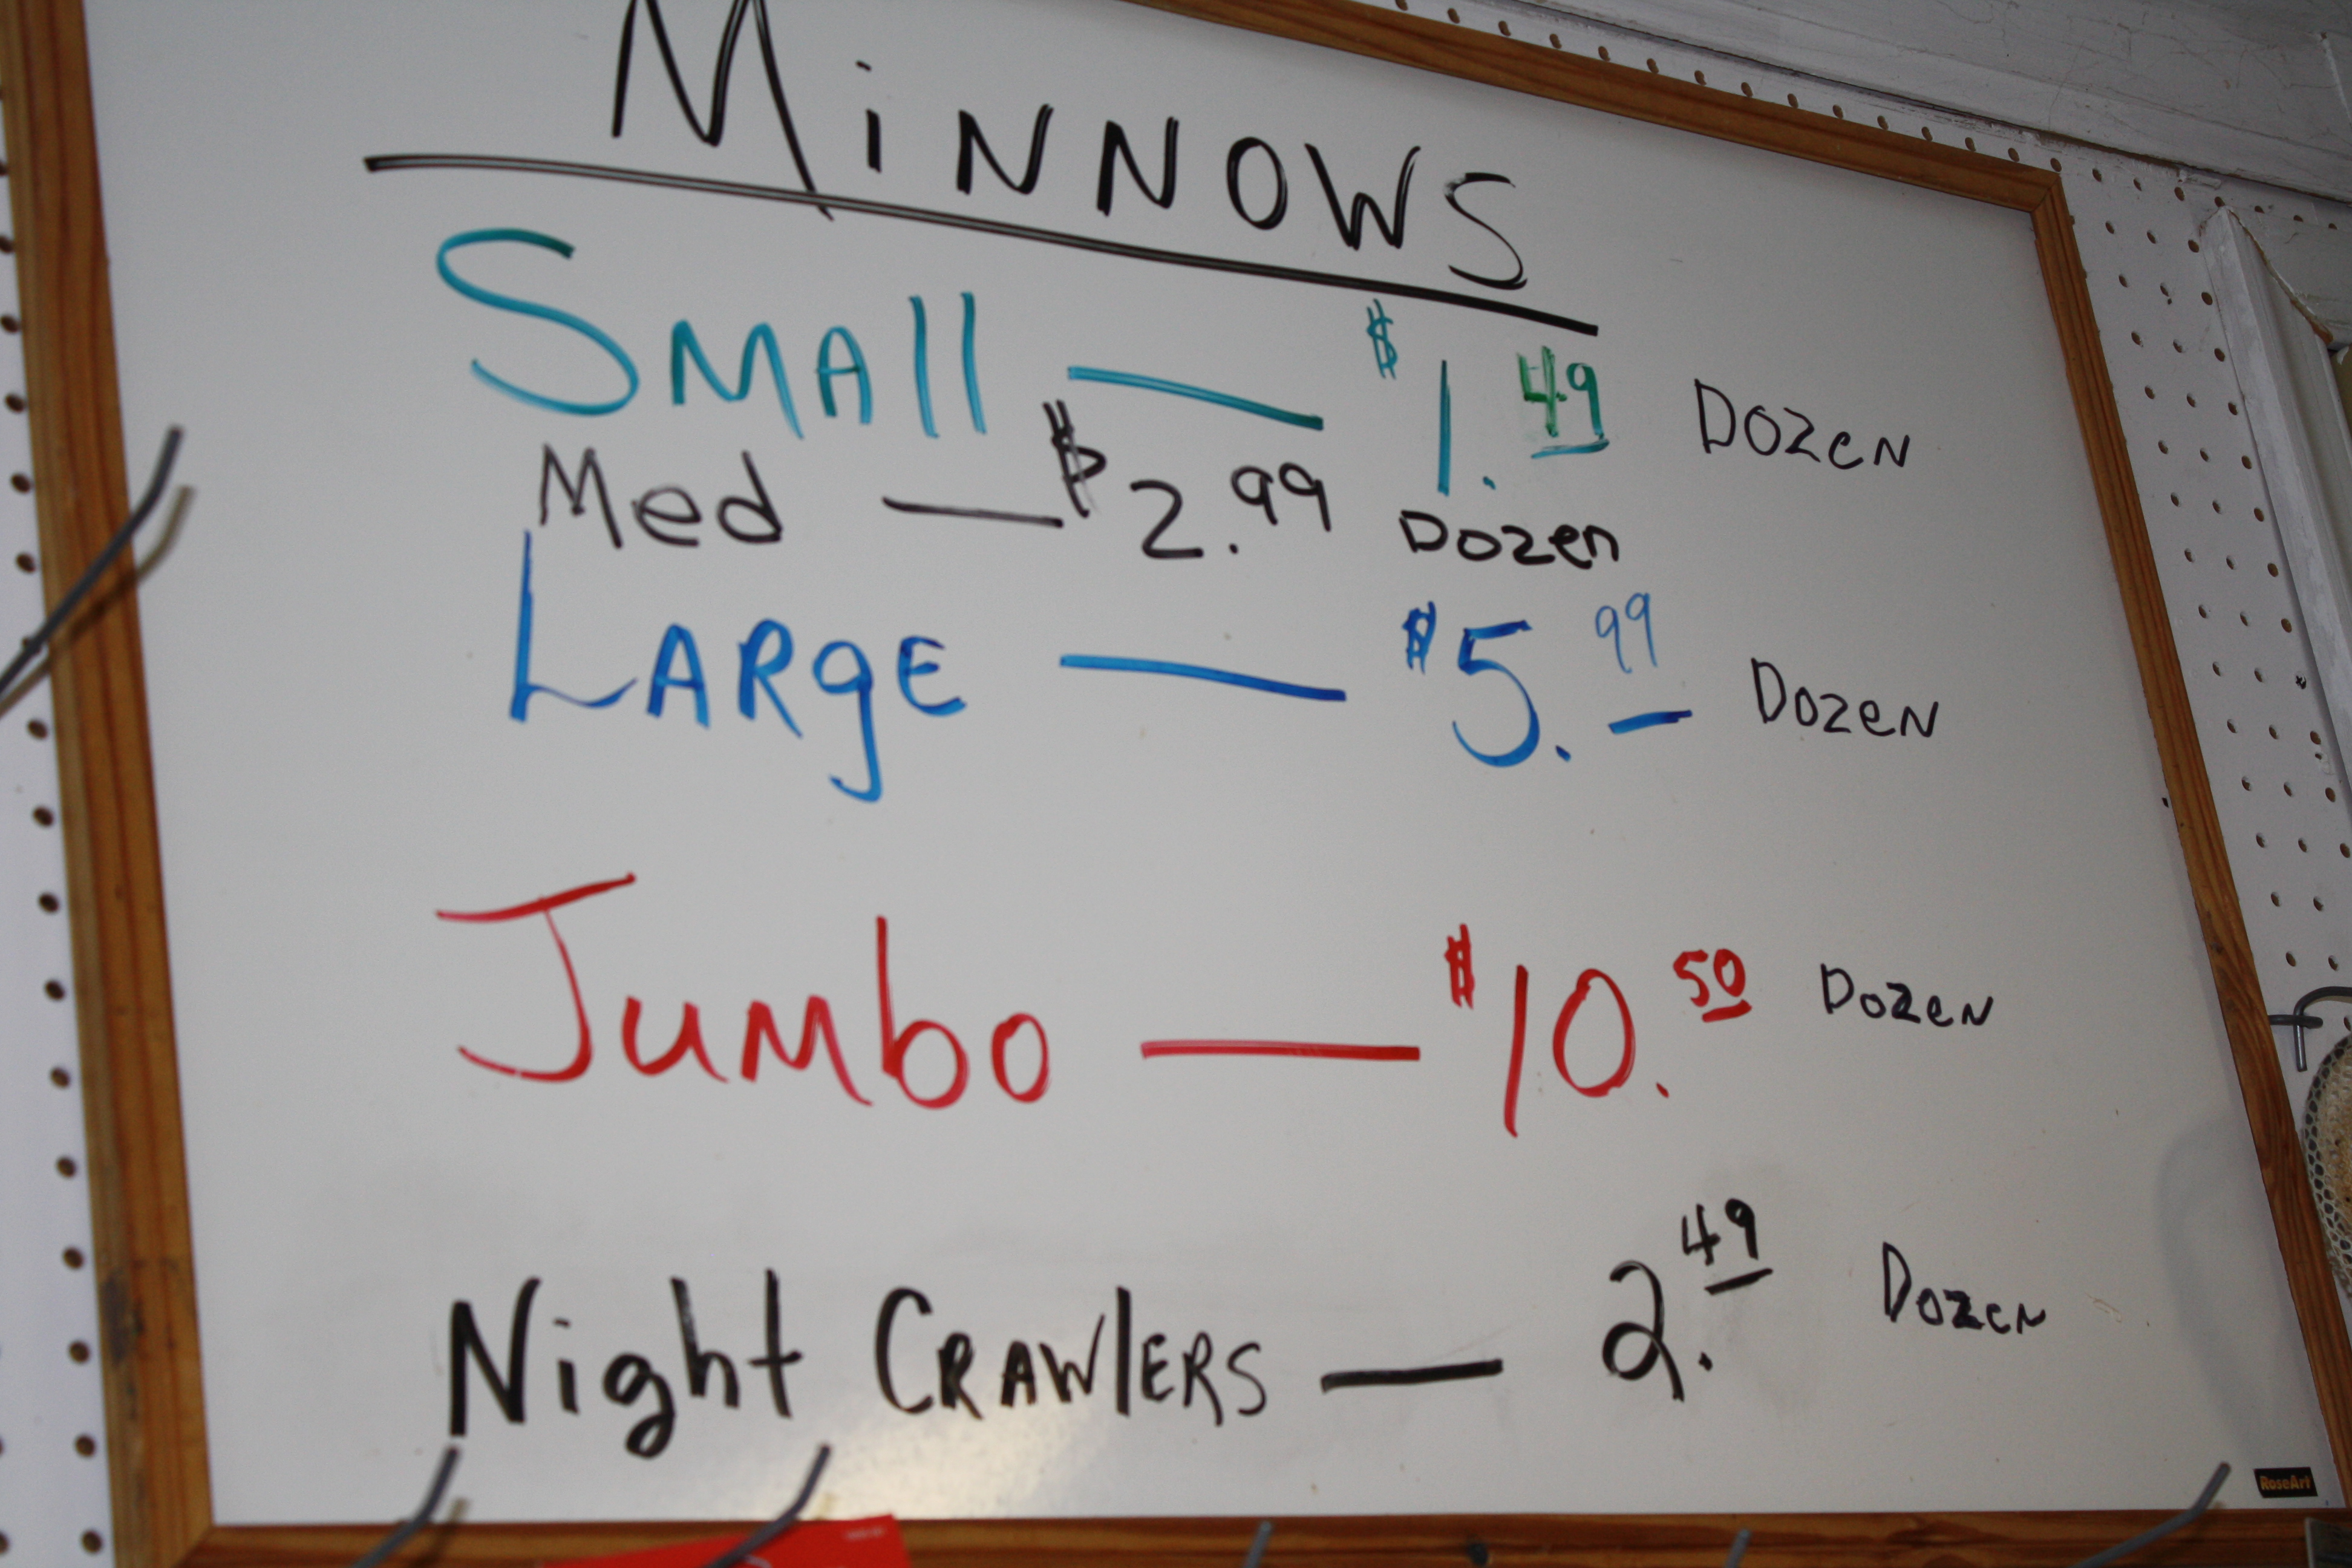 MiNNOWS
SMAll — $1.49 DOZeN
Med — $2.99 Dozen
LARgE — $5.99 DOZeN
JuMbo — $10.50 DoZeN
Night CRAWlERS — 2.49 DoZeN
RoseArt